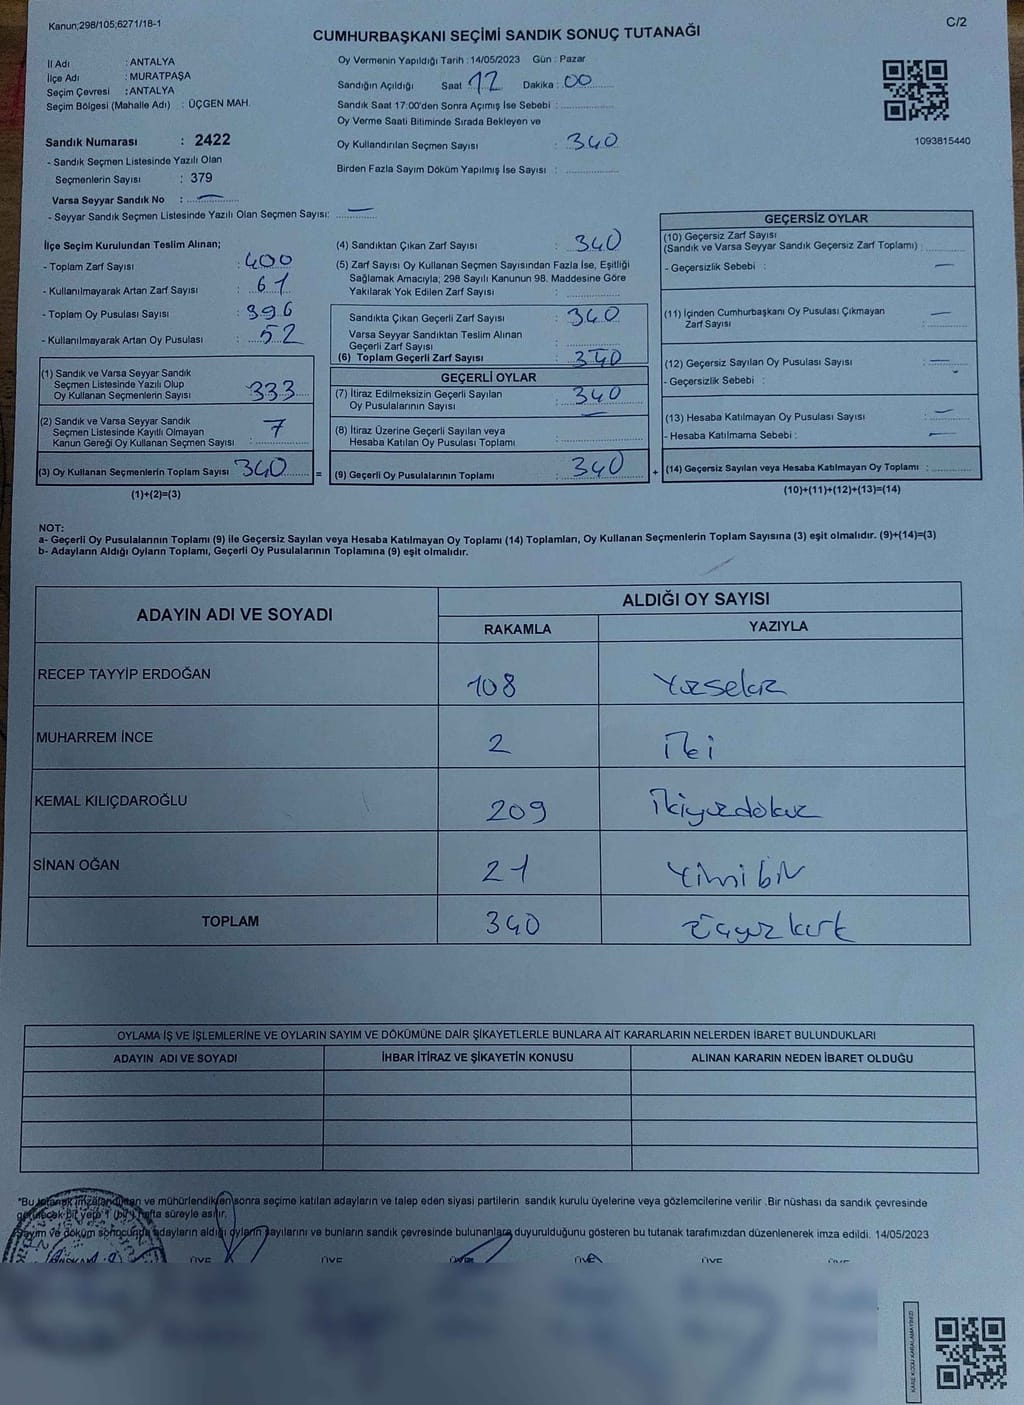 Kanun;298/105;6271/18-1
C/2
CUMHURBAŞKANI SEÇİMİ SANDIK SONUÇ TUTANAĞI
İl Adı : ANTALYA
İlçe Adı : MURATPAŞA
Seçim Çevresi : ANTALYA
Seçim Bölgesi (Mahalle Adı) : ÜÇGEN MAH.
Oy Vermenin Yapıldığı Tarih : 14/05/2023 Gün : Pazar
Sandığın Açıldığı Saat 17 Dakika : 00
Sandık Saat 17:00'den Sonra Açımış İse Sebebi :
Oy Verme Saati Bitiminde Sırada Bekleyen ve
Oy Kullandırılan Seçmen Sayısı : 340
Birden Fazla Sayım Döküm Yapılmış İse Sayısı :
1093815440
Sandık Numarası : 2422
- Sandık Seçmen Listesinde Yazılı Olan
Seçmenlerin Sayısı : 379
Varsa Seyyar Sandık No : —
- Seyyar Sandık Seçmen Listesinde Yazılı Olan Seçmen Sayısı: —
İlçe Seçim Kurulundan Teslim Alınan;
- Toplam Zarf Sayısı : 400
- Kullanılmayarak Artan Zarf Sayısı : 61
- Toplam Oy Pusulası Sayısı : 396
- Kullanılmayarak Artan Oy Pusulası : 52
(1) Sandık ve Varsa Seyyar Sandık
Seçmen Listesinde Yazılı Olup
Oy Kullanan Seçmenlerin Sayısı 333
(2) Sandık ve Varsa Seyyar Sandık
Seçmen Listesinde Kayıtlı Olmayan
Kanun Gereği Oy Kullanan Seçmen Sayısı : 7
(3) Oy Kullanan Seçmenlerin Toplam Sayısı 340 =
(1)+(2)=(3)
(4) Sandıktan Çıkan Zarf Sayısı : 340
(5) Zarf Sayısı Oy Kullanan Seçmen Sayısından Fazla İse, Eşitliği
Sağlamak Amacıyla; 298 Sayılı Kanunun 98. Maddesine Göre
Yakılarak Yok Edilen Zarf Sayısı :
Sandıkta Çıkan Geçerli Zarf Sayısı : 340
Varsa Seyyar Sandıktan Teslim Alınan
Geçerli Zarf Sayısı :
(6) Toplam Geçerli Zarf Sayısı : 340
GEÇERLİ OYLAR
(7) İtiraz Edilmeksizin Geçerli Sayılan
Oy Pusulalarının Sayısı : 340
(8) İtiraz Üzerine Geçerli Sayılan veya
Hesaba Katılan Oy Pusulası Toplamı :
(9) Geçerli Oy Pusulalarının Toplamı : 340 +
GEÇERSİZ OYLAR
(10) Geçersiz Zarf Sayısı
(Sandık ve Varsa Seyyar Sandık Geçersiz Zarf Toplamı) :
- Geçersizlik Sebebi : —
(11) İçinden Cumhurbaşkanı Oy Pusulası Çıkmayan
Zarf Sayısı : —
(12) Geçersiz Sayılan Oy Pusulası Sayısı : —
- Geçersizlik Sebebi :
(13) Hesaba Katılmayan Oy Pusulası Sayısı : —
- Hesaba Katılmama Sebebi : —
(14) Geçersiz Sayılan veya Hesaba Katılmayan Oy Toplamı :
(10)+(11)+(12)+(13)=(14)
NOT:
a- Geçerli Oy Pusulalarının Toplamı (9) ile Geçersiz Sayılan veya Hesaba Katılmayan Oy Toplamı (14) Toplamları, Oy Kullanan Seçmenlerin Toplam Sayısına (3) eşit olmalıdır. (9)+(14)=(3)
b- Adayların Aldığı Oyların Toplamı, Geçerli Oy Pusulalarının Toplamına (9) eşit olmalıdır.
ADAYIN ADI VE SOYADI
ALDIĞI OY SAYISI
RAKAMLA YAZIYLA
RECEP TAYYİP ERDOĞAN 108 Yüzsekiz
MUHARREM İNCE 2 İki
KEMAL KILIÇDAROĞLU 209 İkiyüzdokuz
SİNAN OĞAN 21 Yirmi bir
TOPLAM 340 Üçyüz kırk
OYLAMA İŞ VE İŞLEMLERİNE VE OYLARIN SAYIM VE DÖKÜMÜNE DAİR ŞİKAYETLERLE BUNLARA AİT KARARLARIN NELERDEN İBARET BULUNDUKLARI
ADAYIN ADI VE SOYADI İHBAR İTİRAZ VE ŞİKAYETİN KONUSU ALINAN KARARIN NEDEN İBARET OLDUĞU
"Bu tutanak imzalandıktan ve mühürlendikten sonra seçime katılan adayların ve talep eden siyasi partilerin sandık kurulu üyelerine veya gözlemcilerine verilir. Bir nüshası da sandık çevresinde
görülecek bir yere 1 (bir) hafta süreyle asılır.
Sayım ve döküm sonucunda adayların aldığı oyların sayılarını ve bunların sandık çevresinde bulunanlara duyurulduğunu gösteren bu tutanak tarafımızdan düzenlenerek imza edildi. 14/05/2023
BAŞKAN ÜYE ÜYE ÜYE ÜYE ÜYE ÜYE
KARE KODU KARALAMAYINIZ!